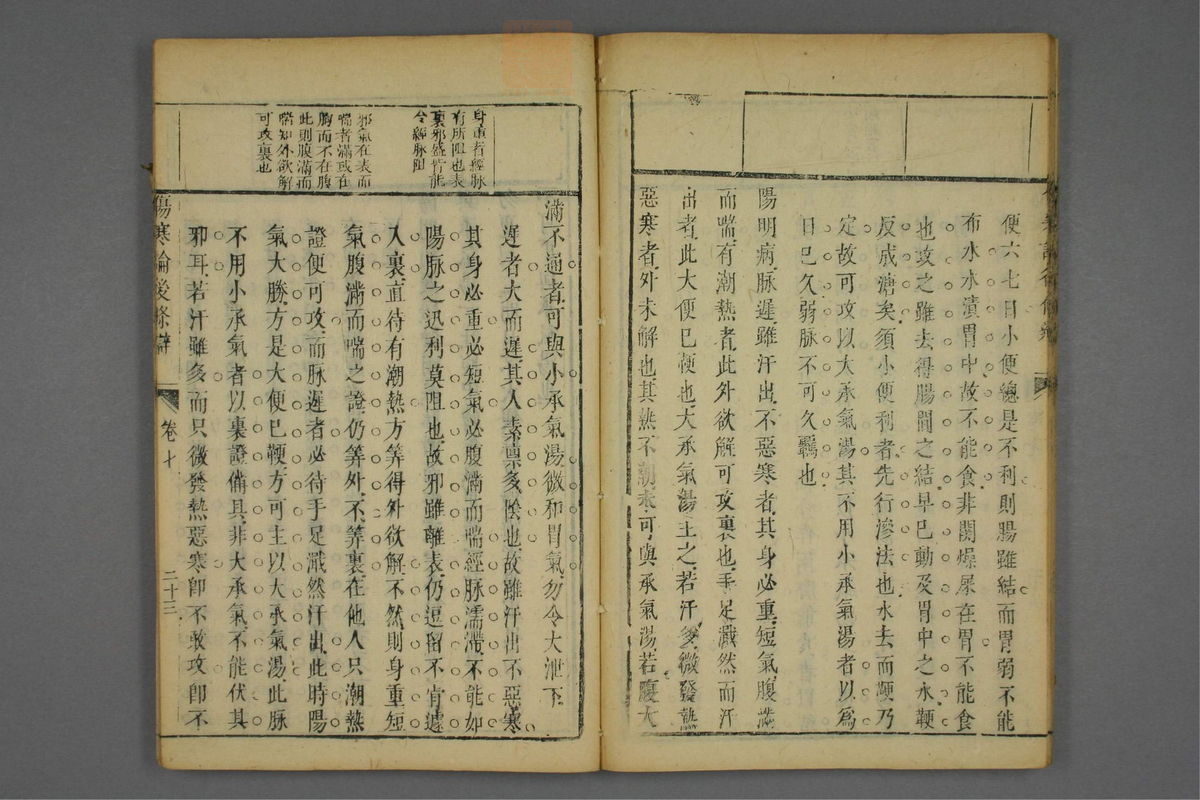 便六七日小便總是不利則腸雖結而胃弱不能
布水水漬胃中故不能食非關燥屎在胃不能食
也攻之雖去得腸間之結早已動及胃中之水鞕
反成溏矣須小便利者先行滲法也水去而鞕乃
定故可攻以大承氣湯其不用小承氣湯者以為
日已久弱脈不可久羈也
陽明病脈遲雖汗出不惡寒者其身必重短氣腹滿
而喘有潮熱者此外欲解可攻裏也手足濈然而汗
出者此大便已鞕也大承氣湯主之若汗多微發熱
惡寒者外未解也其熱不潮未可與承氣湯若腹大
身重者經脈
有所阻也表
裏邪盛皆能
令經脈阻
邪氣在表而
喘者滿或在
胸而不在腹
此則腹滿而
喘知外欲解
可攻裏也
滿不通者可與小承氣湯微和胃氣勿令大泄下
遲者大而遲其人素稟多陰也故雖汗出不惡寒
其身必重必短氣必腹滿而喘經脈濡滯不能如
陽脈之迅利莫阻也故邪雖離表仍逗留不肯遽
入裏直待有潮熱方筭得外欲解不然則身重短
氣腹滿而喘之證仍筭外不筭裏在他人只潮熱
證便可攻而脈遲者必待手足濈然汗出此時陽
氣大勝方是大便已鞕方可主以大承氣湯此脈
不用小承氣者以裏證備具非大承氣不能伏其
邪耳若汗雖多而只微發熱惡寒卽不敢攻卽不
傷寒論後條辯
卷十
二十三